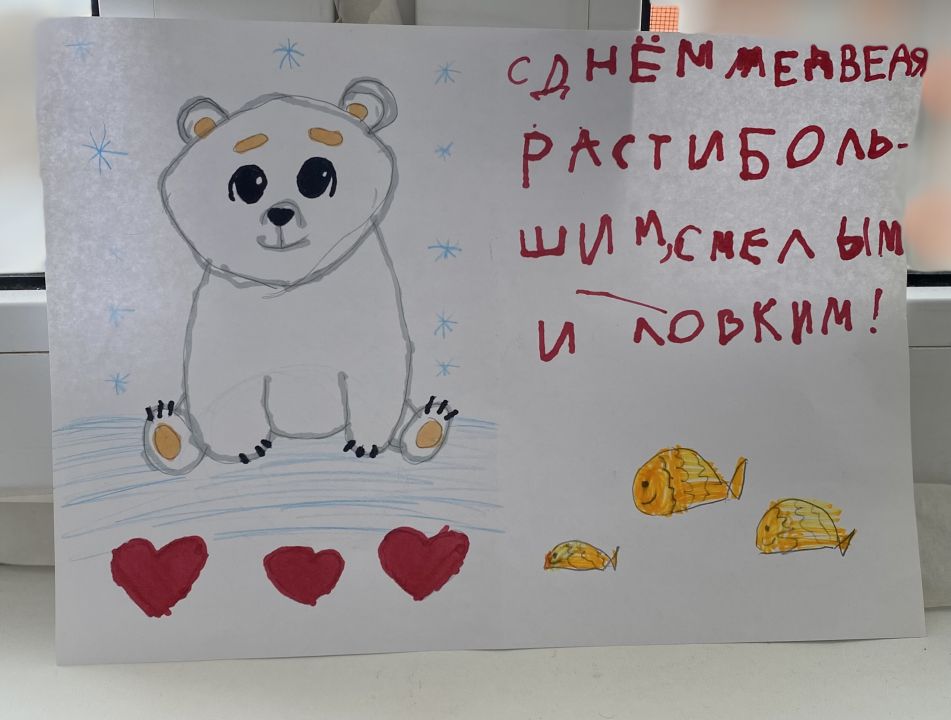 С ДНЁМ МЕДВЕДЯ
РАСТИ БОЛЬ-
ШИМ, СМЕЛЫМ
И ЛОВКИМ!